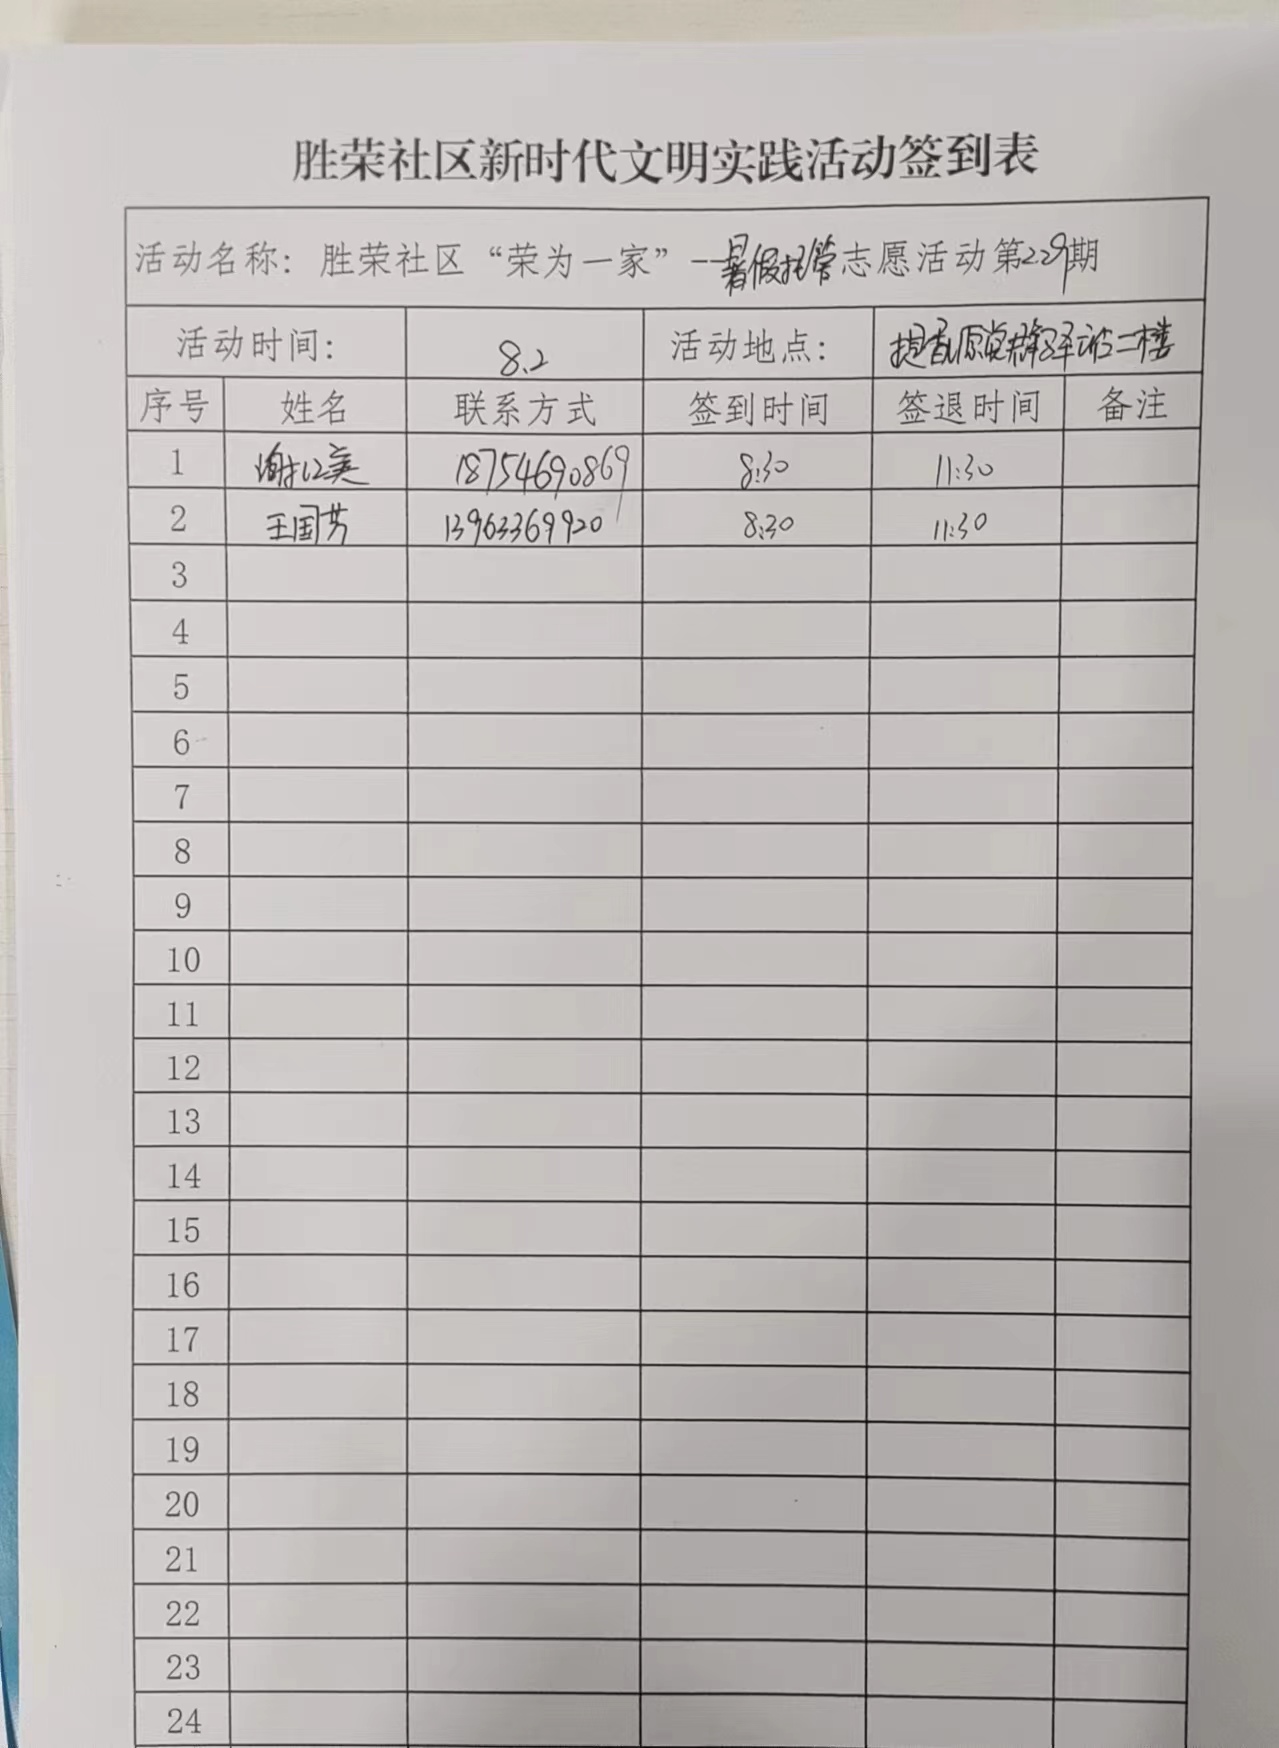 胜荣社区新时代文明实践活动签到表
活动名称：胜荣社区“荣为一家”--暑假托管志愿活动第229期
活动时间： 8.2 活动地点： 提香源党群驿站二楼
序号 姓名 联系方式 签到时间 签退时间 备注
1 谢江英 18754690869 8:30 11:30
2 王国芳 13963369920 8:30 11:30
3
4
5
6
7
8
9
10
11
12
13
14
15
16
17
18
19
20
21
22
23
24